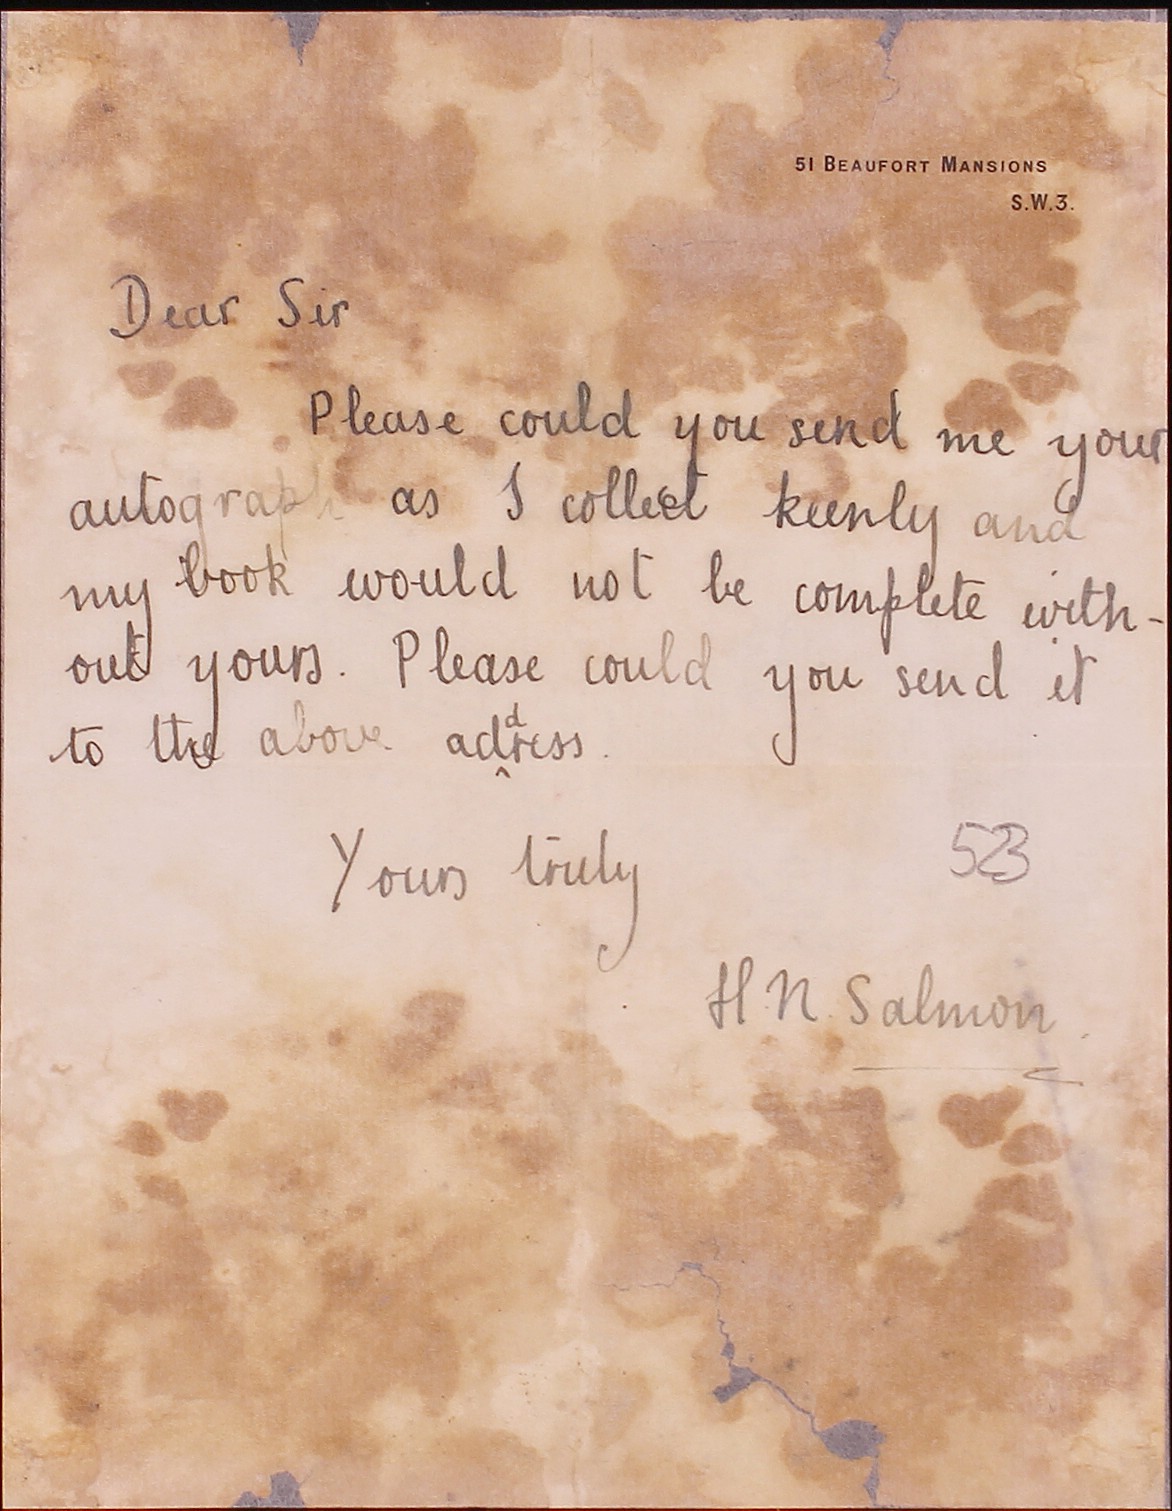 51 BEAUFORT MANSIONS
S.W.3.
Dear Sir
Please could you send me your
autograph as I collect keenly and
my book would not be complete with-
out yours. Please could you send it
to the above address.
Yours truly
523
H.N. Salmon